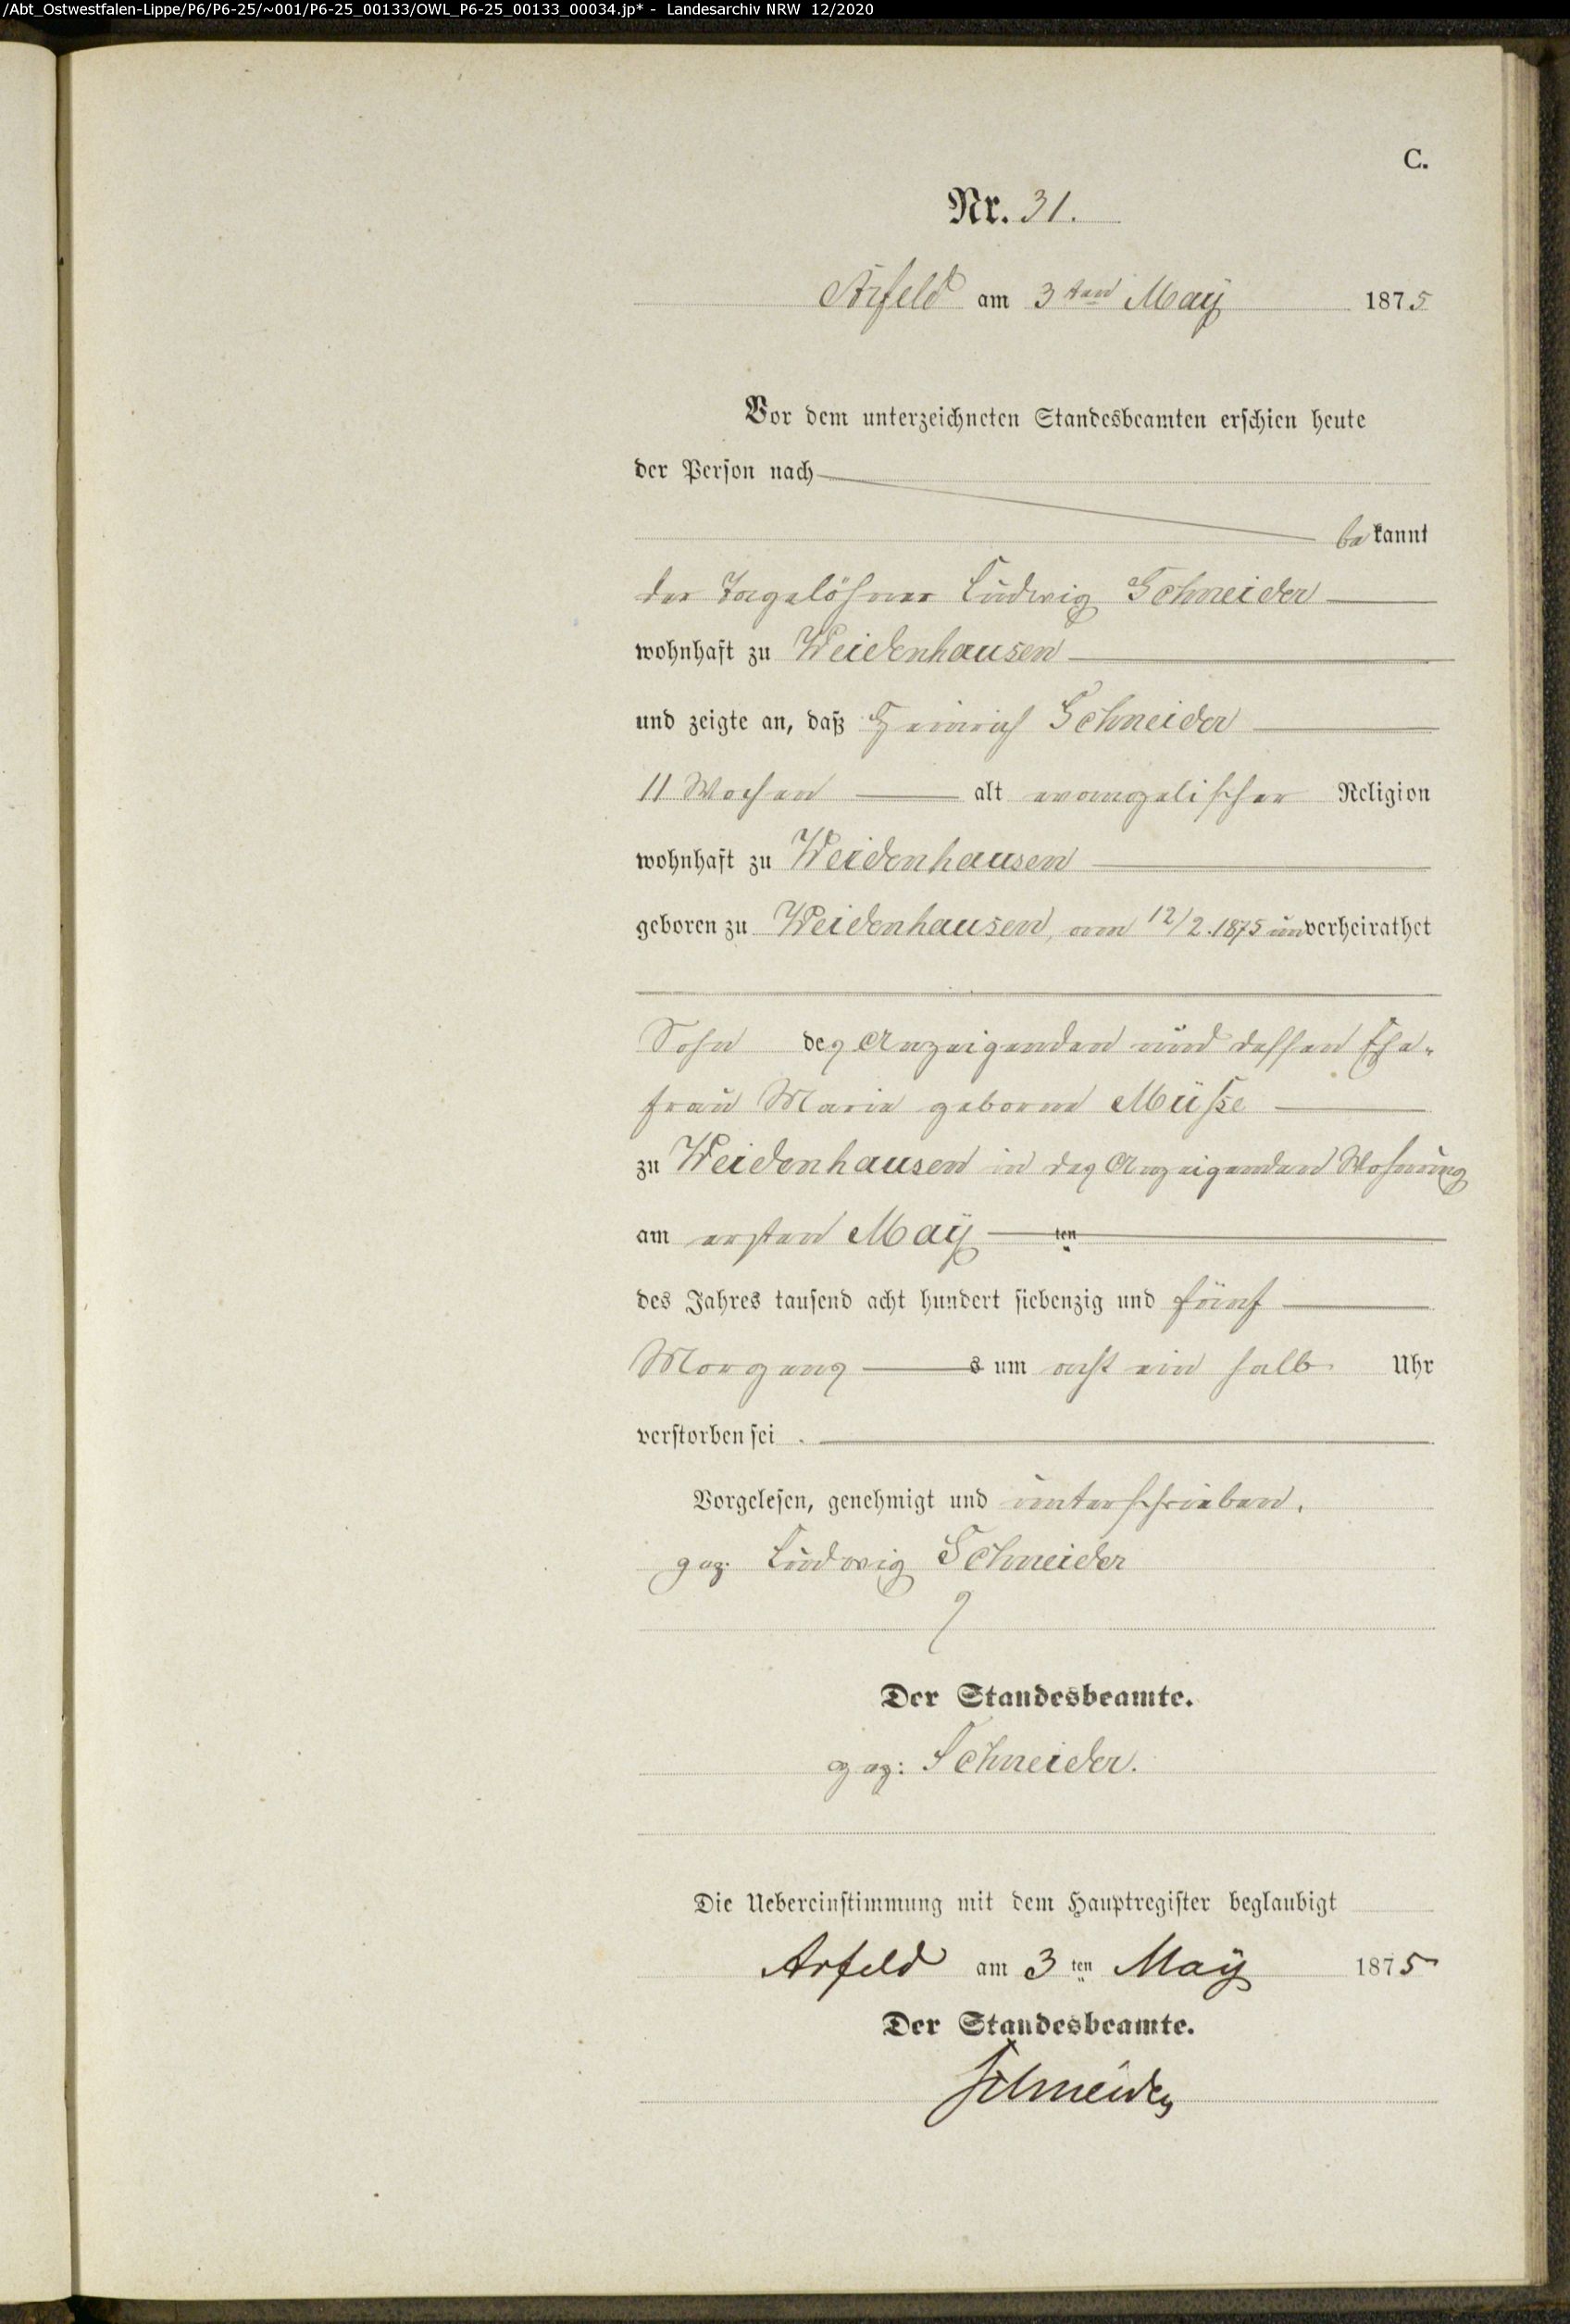 /Abt_Ostwestfalen-Lippe/P6/P6-25/~001/P6-25_00133/OWL_P6-25_00133_00034.jp* - Landesarchiv NRW 12/2020
C.
Nr. 31.
Arfeld am 3ten Maÿ 1875
Vor dem unterzeichneten Standesbeamten erschien heute
der Person nach
bekannt
der Tagelöhner Ludwig Schneider
wohnhaft zu Weidenhausen
und zeigte an, daß Heinrich Schneider
11 Wochen alt evangelischer Religion
wohnhaft zu Weidenhausen
geboren zu Weidenhausen, am 12/2.1875 unverheirathet
Sohn des Anzeigenden und dessen Ehe-
frau Marie geborne Müsse
zu Weidenhausen in des Anzeigenden Wohnung
am ersten Maÿ ten
des Jahres tausend acht hundert siebenzig und fünf
Morgens s um acht ein halb Uhr
verstorben sei .
Vorgelesen, genehmigt und unterschrieben.
gez. Ludwig Schneider
Der Standesbeamte.
gez: Schneider.
Die Uebereinstimmung mit dem Hauptregister beglaubigt
Arfeld am 3 ten Maÿ 1875
Der Standesbeamte.
Schneider